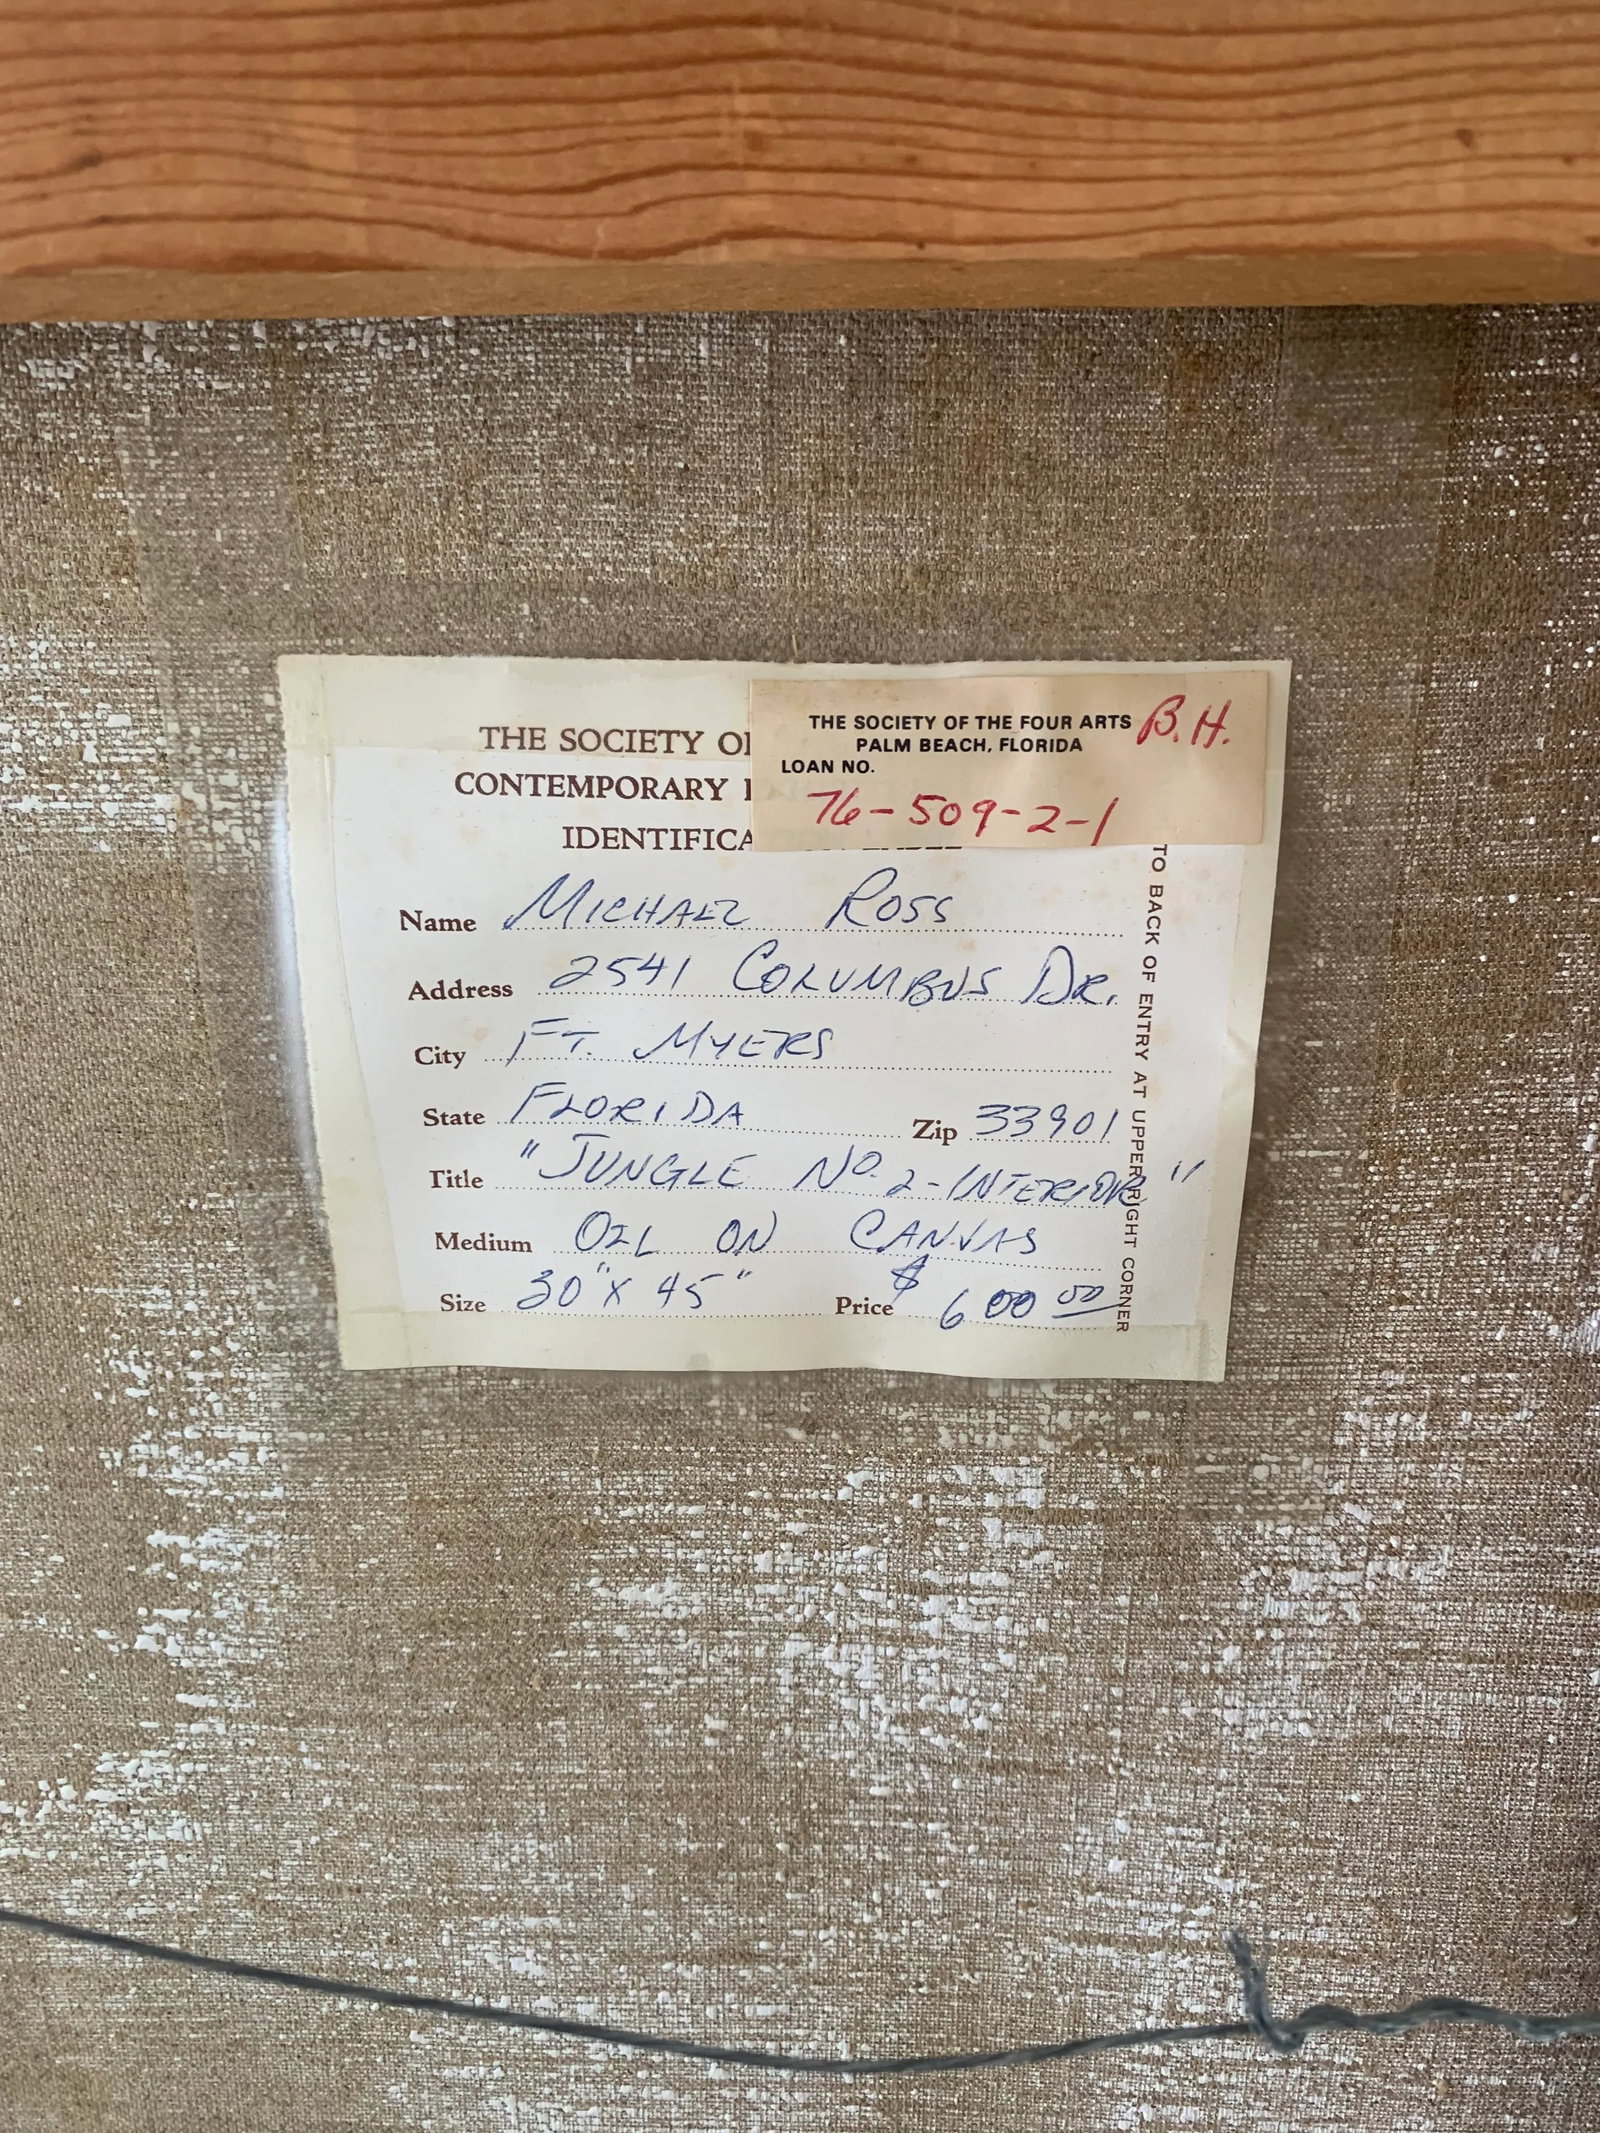 THE SOCIETY OF
CONTEMPORARY
IDENTIFICA
THE SOCIETY OF THE FOUR ARTS B.H.
PALM BEACH, FLORIDA
LOAN NO.
76-509-2-1
Name MICHAEL ROSS
Address 2541 COLUMBUS DR.
City FT. MYERS
State FLORIDA Zip 33901
Title "JUNGLE NO. 2-INTERIOR"
Medium OIL ON CANVAS
Size 30" X 45" Price $ 600 00
TO BACK OF ENTRY AT UPPER RIGHT CORNER